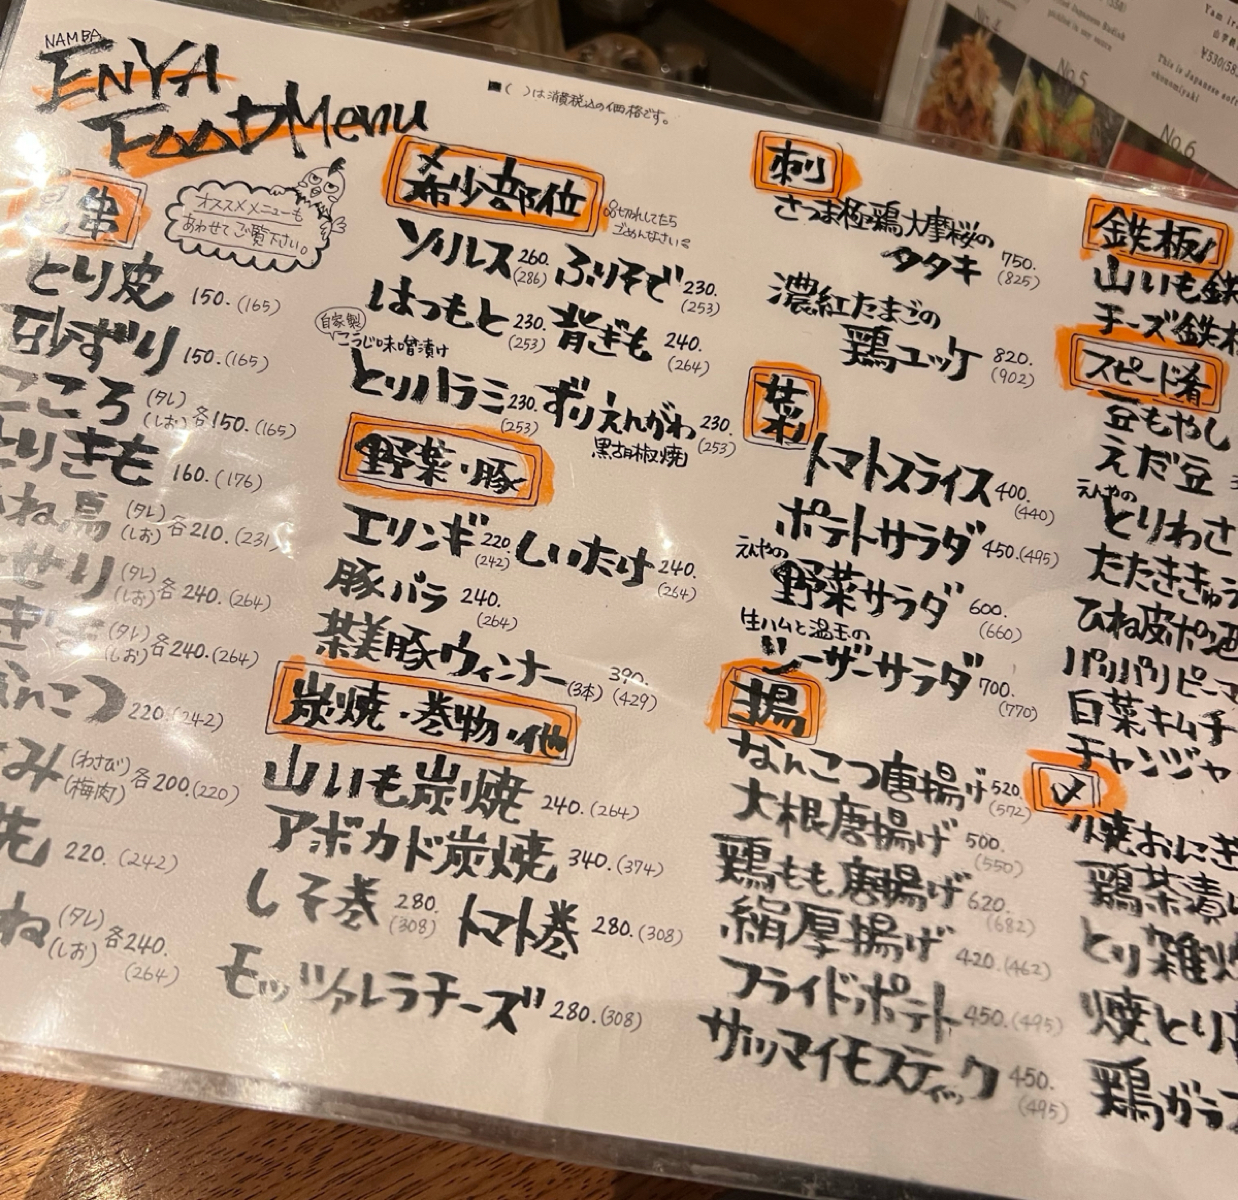 NAMBA
ENYA
Food Menu
■( )は消費税込の価格です。
串
オススメメニューも
あわせてご覧下さい。
とり皮 150.(165)
砂ずり 150.(165)
こころ (タレ)(しお)各150.(165)
とりきも 160.(176)
ひね鳥 (タレ)(しお)各210.(231)
せせり (タレ)(しお)各240.(264)
(タレ)(しお)各240.(264)
なんこつ 220.(242)
さみ (わさび)(梅肉)各200.(220)
220.(242)
(タレ)(しお)各240.(264)
希少部位
※切れてたらごめんなさい
ソリレス 260.(286) ふりそで 230.(253)
はつもと 230.(253) 背ぎも 240.(264)
自家製
こうじ味噌漬け
とりハラミ 230.(253) ずりえんがわ 230.(253)
黒胡椒焼
野菜・豚
エリンギ 220.(242) しいたけ 240.(264)
豚バラ 240.(264)
茶美豚ウィンナー(3本) 390.(429)
炭焼・巻物・他
山いも炭焼 240.(264)
アボカド炭焼 340.(374)
しそ巻 280.(308) トマト巻 280.(308)
モッツァレラチーズ 280.(308)
刺
さつま極鶏大摩桜の
タタキ 750.(825)
濃紅たまごの
鶏ユッケ 820.(902)
菜
トマトスライス 400.(440)
ポテトサラダ 450.(495)
えんやの
野菜サラダ 600.(660)
生ハムと温玉の
シーザーサラダ 700.(770)
揚
なんこつ唐揚げ 520.(572)
大根唐揚げ 500.(550)
鶏もも唐揚げ 620.(682)
絹厚揚げ 420.(462)
フライドポテト 450.(495)
サツマイモスティック 450.(495)
鉄板
山いも鉄
チーズ鉄
スピード肴
豆もやし
えだ豆
えんやの
とりわさ
たたききゅう
ひね皮ポン酢
パリパリピーマ
白菜キムチ
チャンジャ
〆
焼おにぎ
鶏茶漬
とり雑炊
焼とり
鶏ガラ
No.4
No.5
No.6
pickled in soy sauce
Yam
¥530(583)
This is Japanese soft
okonomiyaki